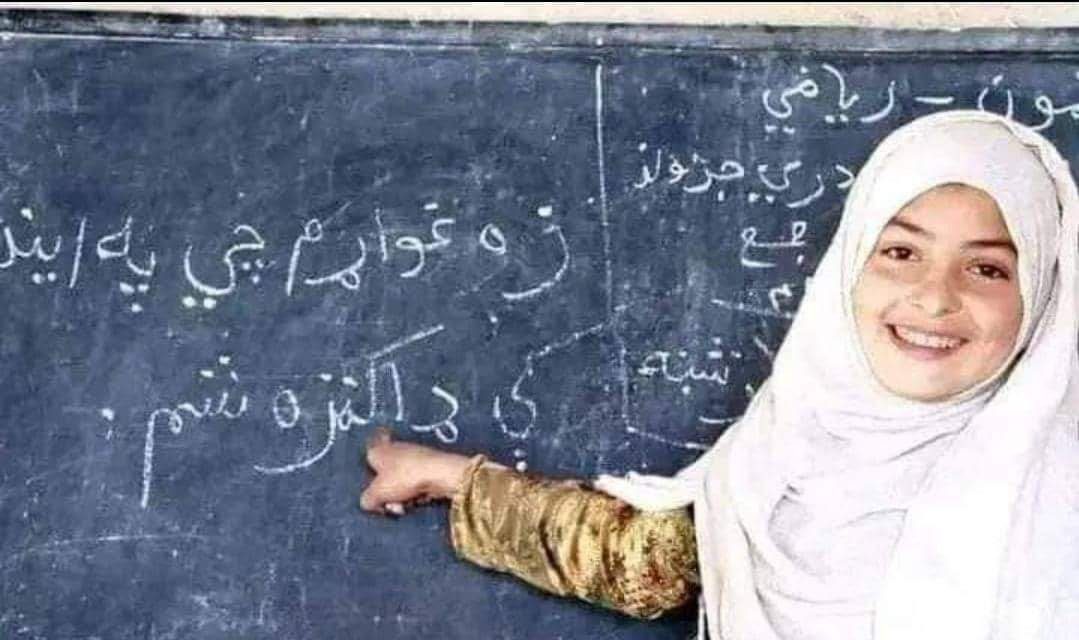 مون - ریاضي
دري جزولز
جمع
م
شنبه
زه غواړم چي په ایند
کي ډاکتره شم.